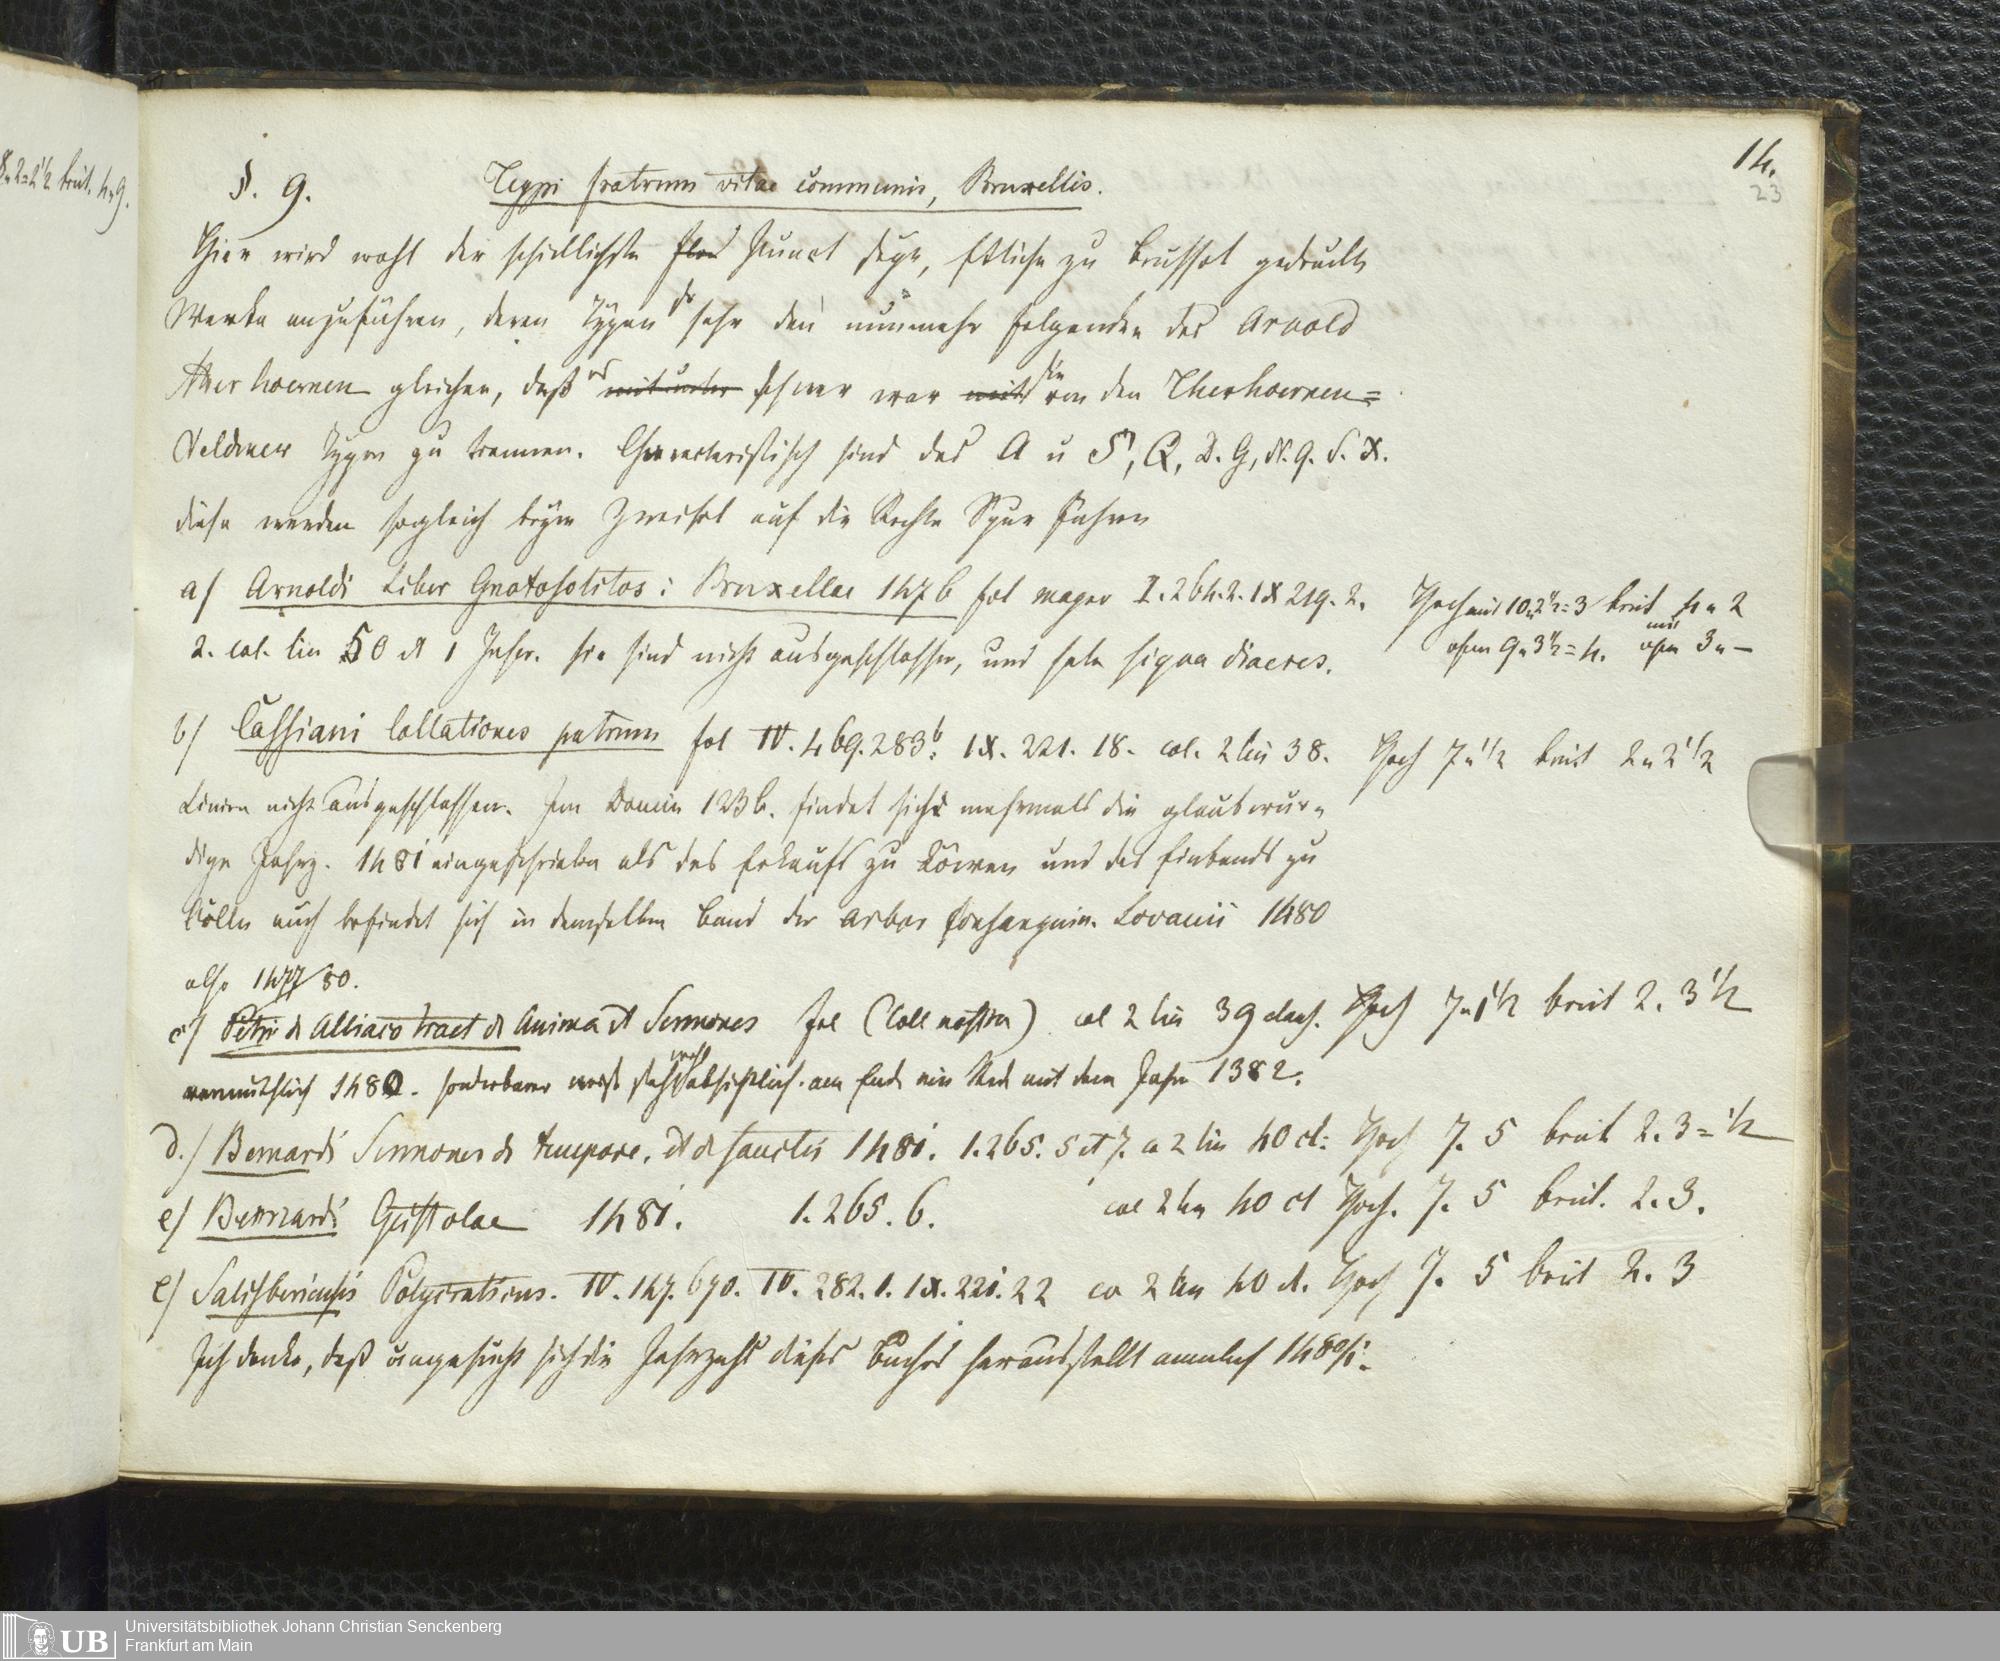 8.2=2½ breit. 4.9.
14.
23
§. 9. Typi fratrum vitae communis, Bruxellis.
Hier wird wohl der schicklichste Punct seyn, Etliche zu Brüssel gedruckte
Werke anzuführen, deren Typen so sehr den nunmehr folgenden des Arnold
Ther hoernen gleichen, daß es mit unter schwer war mit sie von den Therhoernen=
Veldener Typen zu trennen. Characteristisch sind das A u S, Q, D. G, N. q. S. X.
diese werden sogleich beym Zweifel auf die Rechte Spur führen
a/ Arnoldi Liber Gnotosolitos: Bruxellae 1476 fol major I. 264.2. IX 219. 2. Hoch mit 10.2½=3 breit 4 " 2
2. col. lin 50 et 1 Inscr. sie sind nicht ausgeschlossen, und sehr signa diaeres. ohne 9 " 3½=4. ohne 3 " –
b/ Cassiani Collationes patrum fol IV. 469. 283b. IX. 221. 18. col. 2 lin 38. Hoch 7 " ½ breit 2 " 2½
Linien nicht ausgeschlossen. Im Domin 123b. findet sich mehrmals die glaubwür=
dige Jahrz. 1481 eingeschrieben als des Erkaufs zu Löwen und des Einbands zu
Cölln auch befindet sich in demselben Band der Arbor Consanguin. Lovanii 1480
also 1477/80.
c/ Petri de Alliaco tract de Anima et Sermones fol (Coll nostra) col 2 lin 39 clauf. Hoch 7 " 1½ breit 2. 3½
vermuthlich 1480. sonderbarer weise steht wohl absichtlich am Ende ein Rede mit dem Jahr 1382.
d./ Bernardi Sermones de tempore, et de sanctis 1481. 1.265. 5 et 7. co 2 lin 40 cl: Hoch 7. 5 breit 2. 3=½
e/ Bernardi Epistolae 1481. 1. 265. 6. col 2 lin 40 cl Hoch. 7. 5 breit. 2. 3.
e/ Salisberiensis Polycraticus. IV. 147. 690. IV. 282. 1. IX. 221. 22 co 2 lin 40 cl. Hoch 7. 5 breit 2. 3
Ich denke, daß ungesucht sich die Jahrzahl dieses Buches herausstellt nemlich 1480/1.
UB
Universitätsbibliothek Johann Christian Senckenberg
Frankfurt am Main